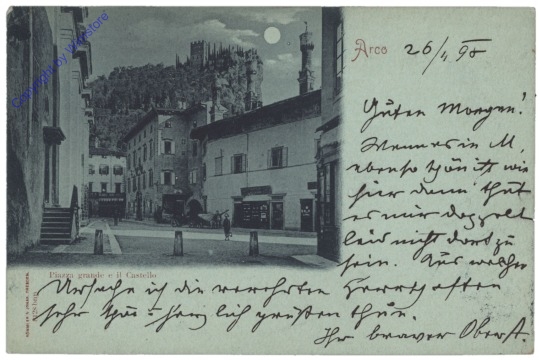 Copyright by Wanostore
Arco
26/4 98
Guten Morgen!
Wenn es in M.
ebenso schön ist wie
hier dann thut
es mir doppelt
leid nicht dort zu
sein. Aus welcher
Piazza grande e il Castello
Ursache ich die verehrten Herrschaften
sehr schön u. herzlich grüßen thue.
Ihr braver Oberst.